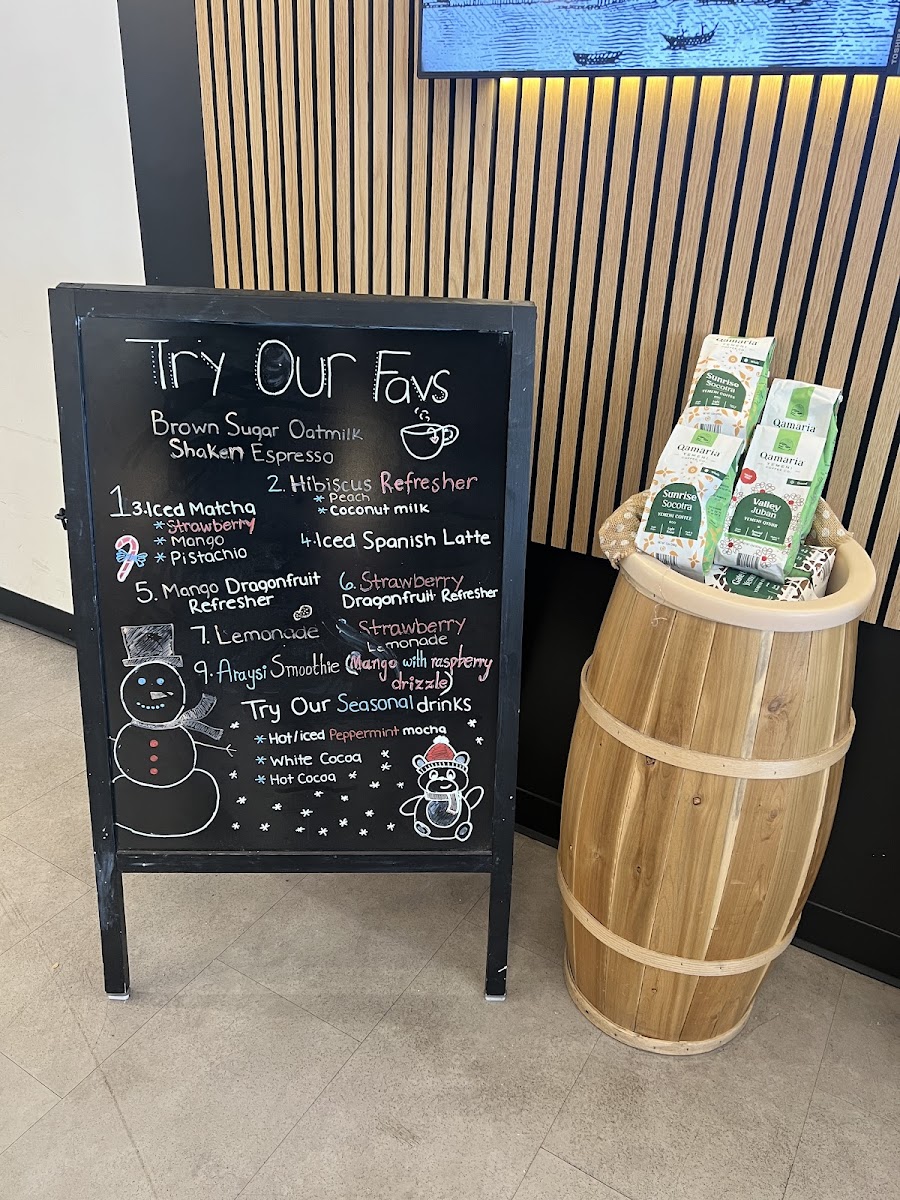 Try Our Favs
Brown Sugar Oatmilk
Shaken Espresso
2. Hibiscus Refresher
* Peach
* Coconut milk
1
3. Iced Matcha
* Strawberry
* Mango
* Pistachio
4. Iced Spanish Latte
5. Mango Dragonfruit
Refresher
6. Strawberry
Dragonfruit Refresher
7. Lemonade
Strawberry
Lemonade
9. Araysi Smoothie (Mango with raspberry
drizzle)
Try Our Seasonal drinks
* Hot/iced Peppermint mocha
* White Cocoa
* Hot Cocoa
TOSHIBA
Qamaria
YEMENI COFFEE
Sunrise
Socotra
YEMENI COFFEE
Qamaria
Qamaria
YEMENI
COFFEE CO.
Sunrise
Socotra
YEMENI COFFEE
Qamaria
YEMENI
COFFEE CO.
Valley
Juban
YEMENI QISHR